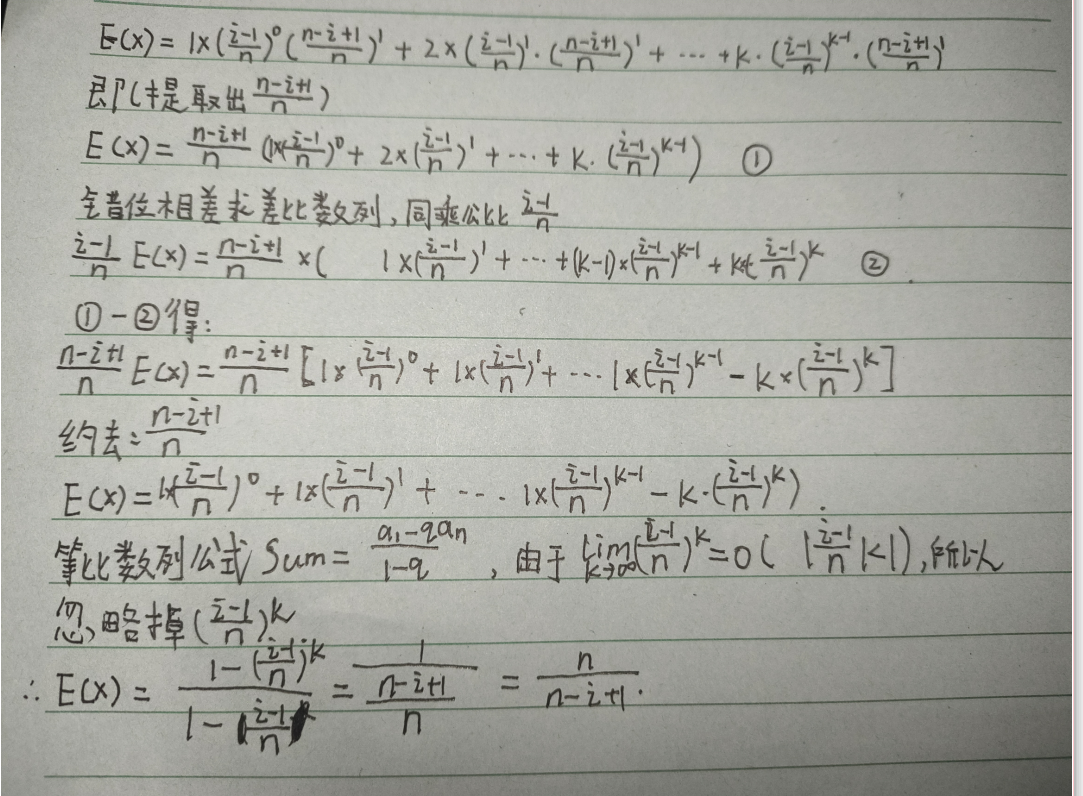 E(x) = 1×(\frac{i-1}{n})^0 (\frac{n-i+1}{n})^1 + 2×(\frac{i-1}{n})^1·(\frac{n-i+1}{n})^1 + ··· + k·(\frac{i-1}{n})^{k-1}·(\frac{n-i+1}{n})^1
即(提取出\frac{n-i+1}{n})
E(x) = \frac{n-i+1}{n} (1×(\frac{i-1}{n})^0 + 2×(\frac{i-1}{n})^1 + ··· + k·(\frac{i-1}{n})^{k-1}) ①
错位相差求差比数列,同乘公比 \frac{i-1}{n}
\frac{i-1}{n} E(x) = \frac{n-i+1}{n} ×( 1×(\frac{i-1}{n})^1 + ··· + (k-1)×(\frac{i-1}{n})^{k-1} + k×(\frac{i-1}{n})^k ②
①-②得:
\frac{n-i+1}{n} E(x) = \frac{n-i+1}{n} [1×(\frac{i-1}{n})^0 + 1×(\frac{i-1}{n})^1 + ··· 1×(\frac{i-1}{n})^{k-1} - k×(\frac{i-1}{n})^k]
约去:\frac{n-i+1}{n}
E(x) = 1×(\frac{i-1}{n})^0 + 1×(\frac{i-1}{n})^1 + ··· 1×(\frac{i-1}{n})^{k-1} - k·(\frac{i-1}{n})^k).
等比数列公式 Sum = \frac{a_1-qa_n}{1-q} , 由于 \lim_{k→∞}(\frac{i-1}{n})^k = 0 ( |\frac{i-1}{n}|<1), 所以
忽略掉(\frac{i-1}{n})^k
∴ E(x) = \frac{1-(\frac{i-1}{n})^k}{1-(\frac{i-1}{n})} = \frac{1}{\frac{n-i+1}{n}} = \frac{n}{n-i+1}.